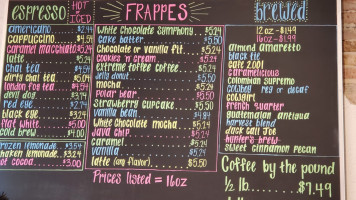 espresso
HOT or ICED
americano $2.44
cappuccino $4.59
caramel macchiato $5.24
latte $5.24
chai tea $4.59
dirty chai tea $5.09
london fog tea $4.59
red eye $2.74
black eye $3.24
flat white $5.00
cold brew $4.00
frozen lemonade $3.54
shaken lemonade $3.24
hot cocoa $3.00
FRAPPES
white chocolate symphony $5.24
cake batter $5.50
chocolate or vanilla fit $5.24
cookies 'n cream $5.24
extreme toffee coffee $5.24
jelly donut $5.50
mocha $5.24
polar bear $5.50
strawberry cupcake $5.50
vanilla bean $4.84
white chocolate mocha $5.24
java chip $5.24
caramel $5.24
vanilla $5.24
latte (any flavor) $5.50
Prices listed = 16oz
brewed
12oz - $1.49
16oz - $1.99
almond amaretto
black tie
cafe 2001
caramelicious
colombian supremo
cowboy reg or decaf
cowgirl
french quarter
guatemalan antigua
harvest blend
duck call Joe
hunter's brew
sweet cinnamon pecan
Coffee by the pound
1/2 lb. $7.49